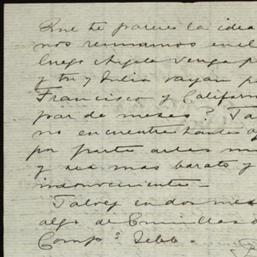 Que te parece la idea
nos reunamos en el
luego Angela venga p
y tu y Julia vayan p
Francisco y Californ
par de meses? Ta
no encuentre
por parte antes m
y sea mas barato y
inconveniente -
Talvez en dos me
algo de Comillas o
Comp.ª